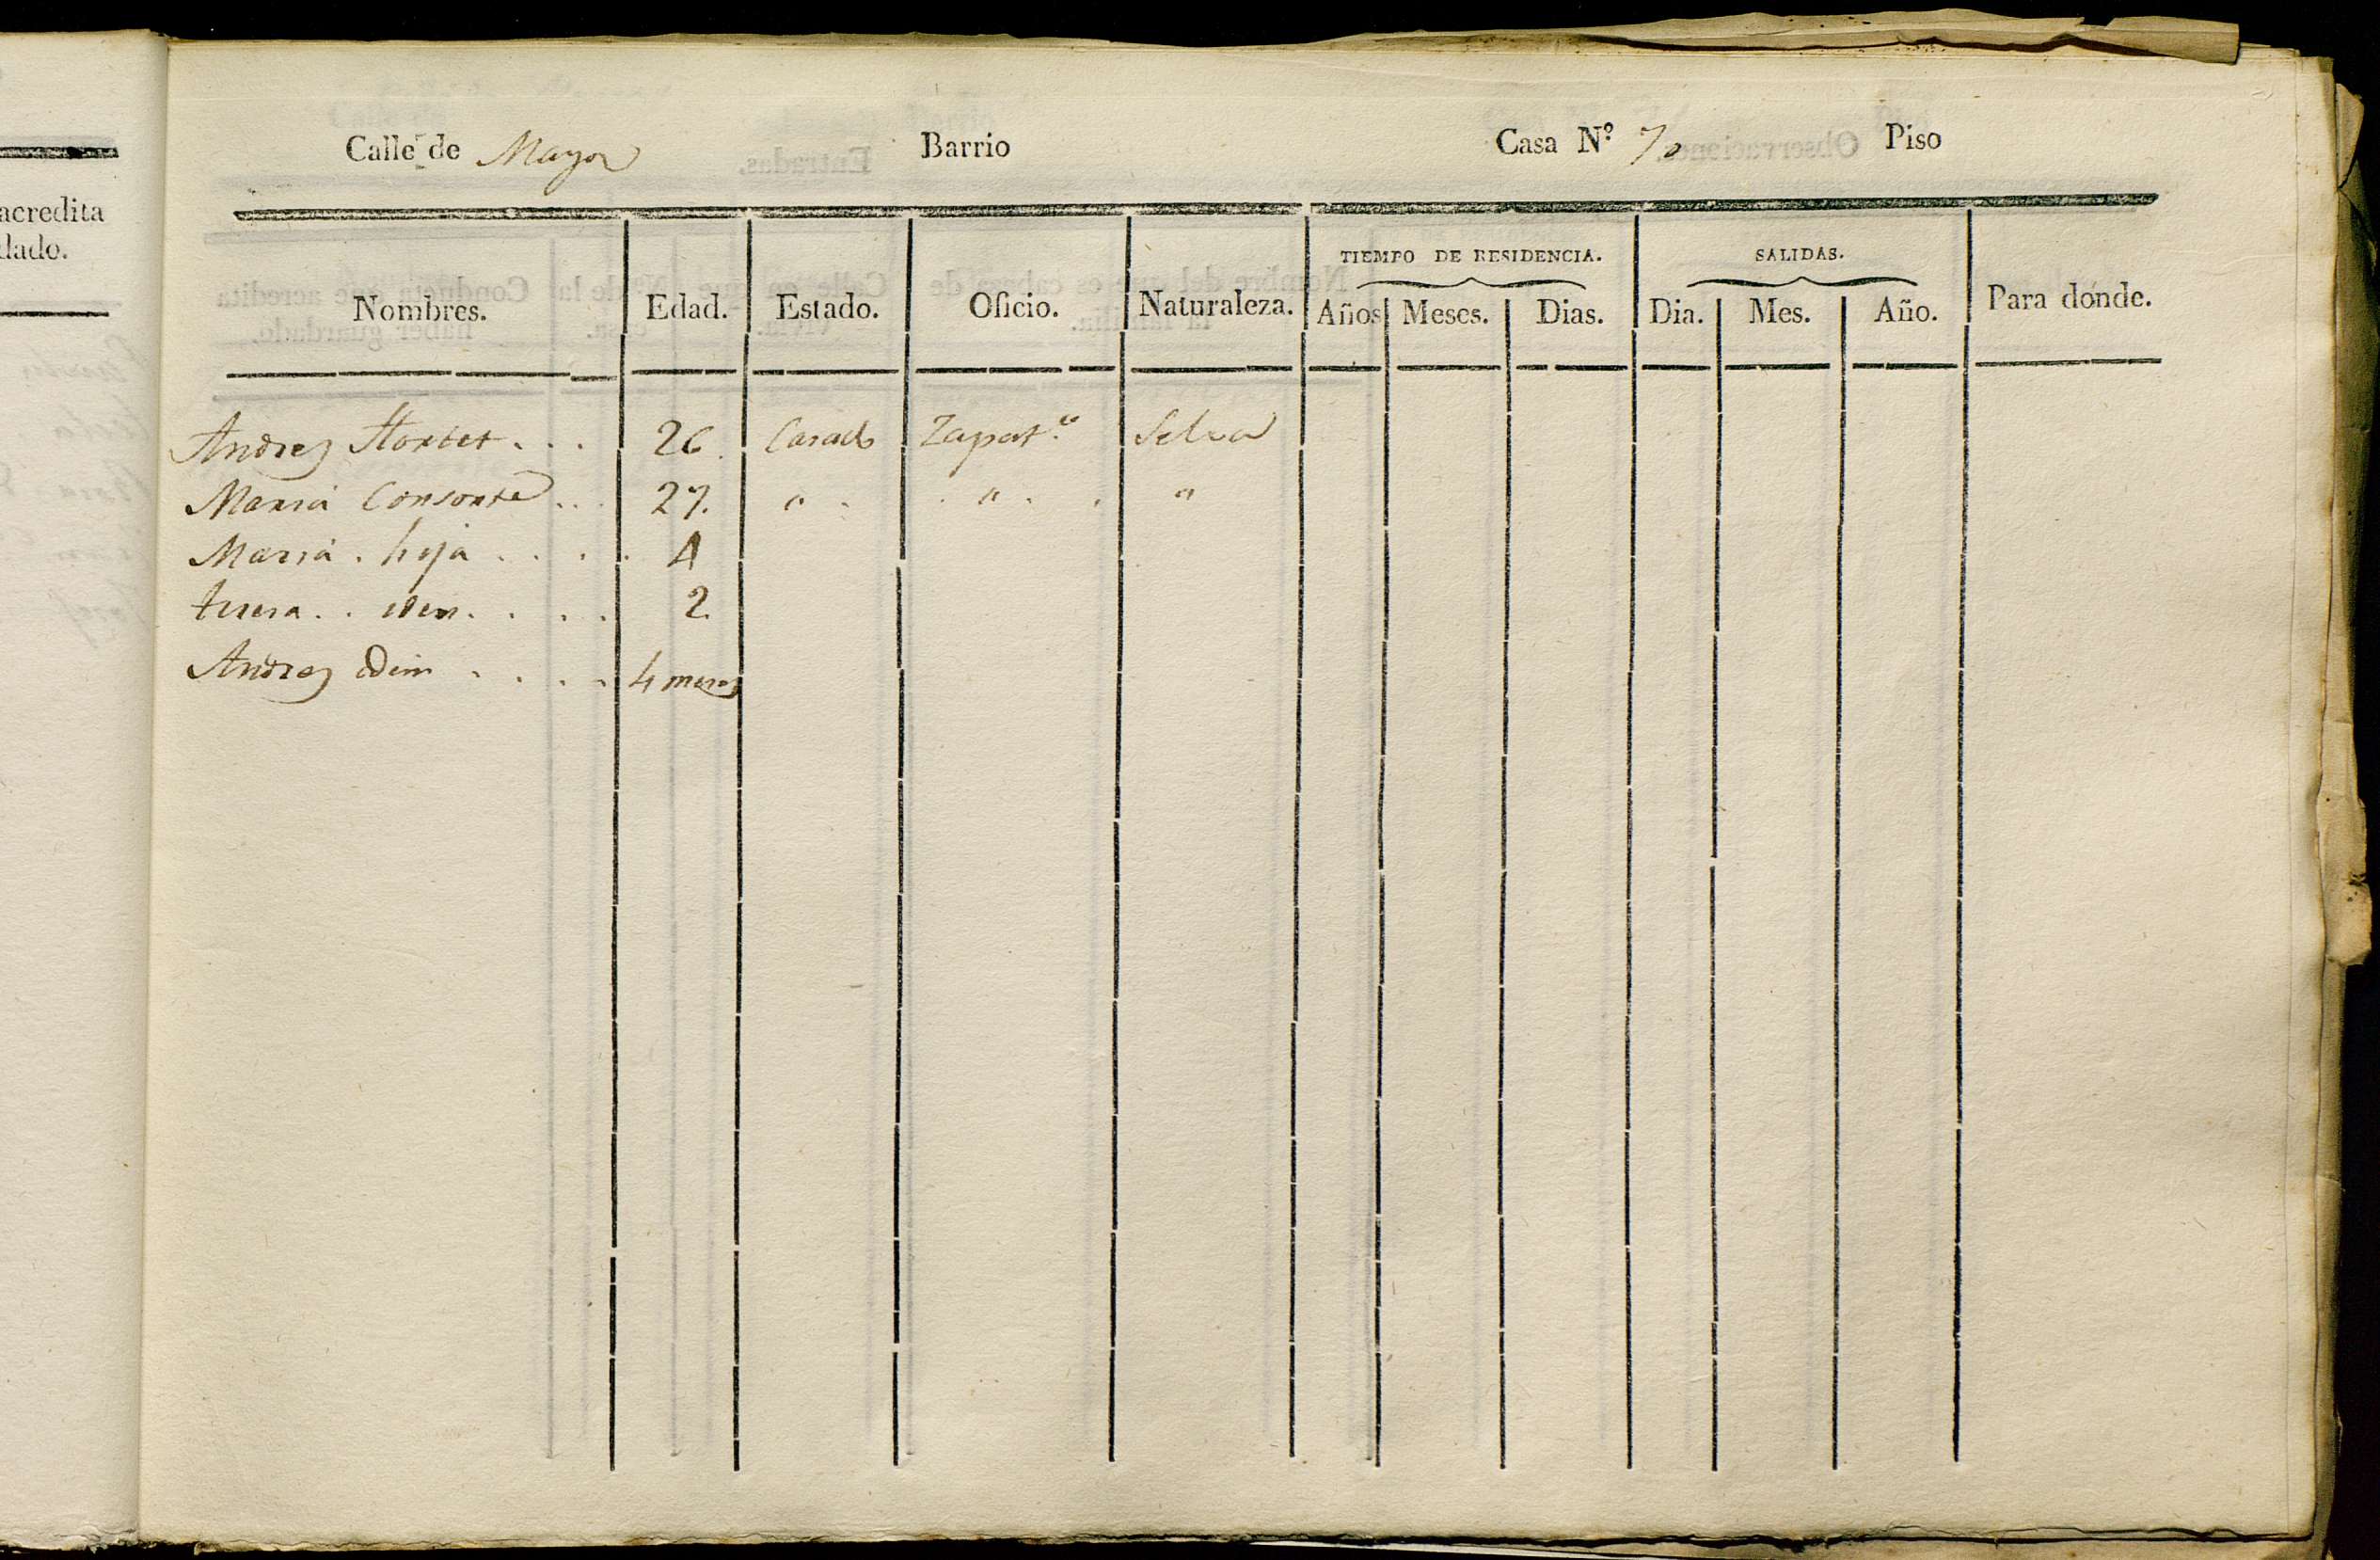 acredita
dado.
Calle de Mayor Barrio Casa N.º 70 Piso
TIEMPO DE RESIDENCIA. SALIDAS.
Nombres. Edad. Estado. Oficio. Naturaleza. Años Meses. Dias. Dia. Mes. Año. Para dónde.
Andres Hortet . . . 26. Casado Zapat.º Selva
Maria Consorte . . . 27. " . . " . . "
Maria . hija . . . . 4
teresa . . iden . . . . 2
Andres idem . . . . 4 meses